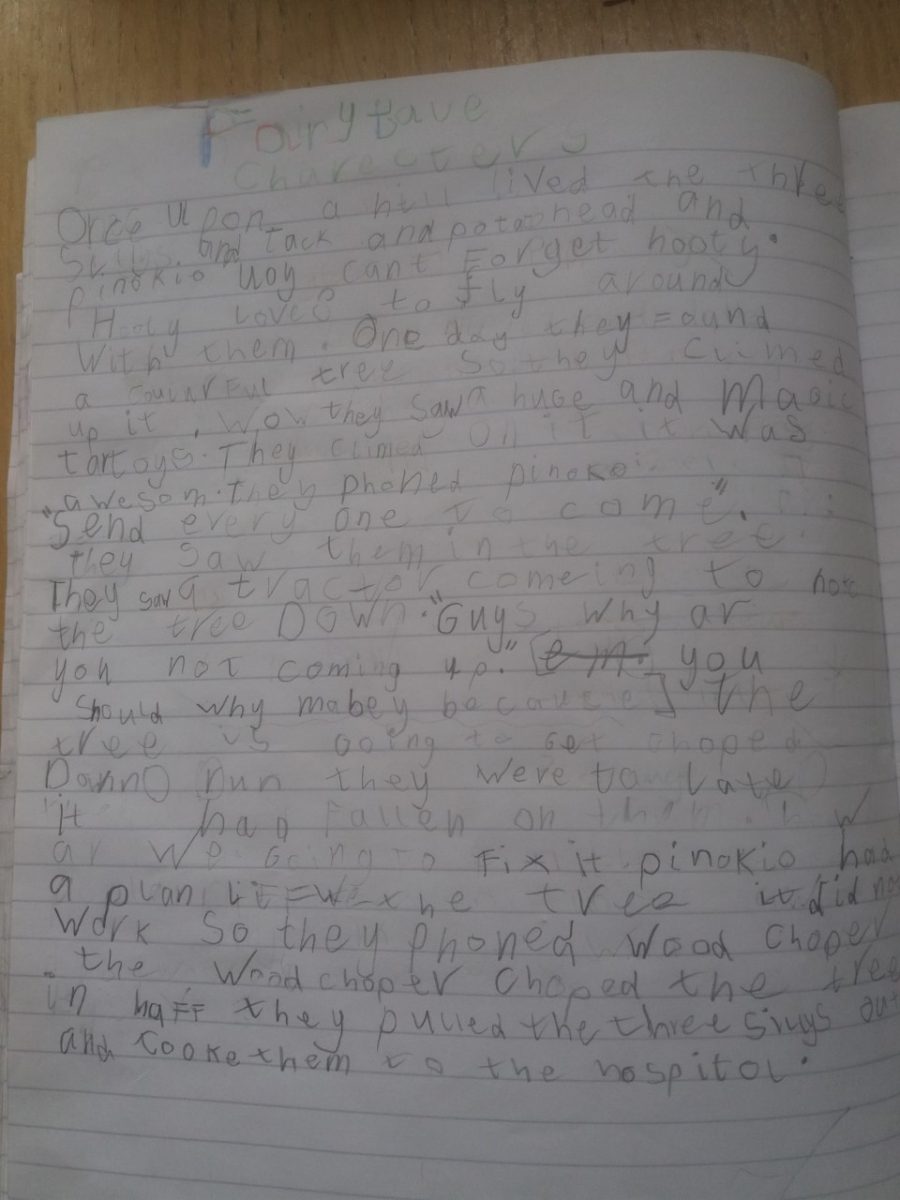 Fairytave
Charecters
Orce upon a hill lived the three
and Jack and potatohead and
pinokio uoy cant Forget hooty.
Hooty loves to fly around
With them. One day they Found
a tree so they climed
up it. Wow they saw a huge and Magic
tortoys. They climed On it it was
awesom. they phoned pinokoi
"Send every one to come".
they saw them in the tree.
They saw a tractor comeing to
the tree Down. "Guys why ar
you not coming up." you
should why mabey because] the
tree is going to get choped
Dann Dun they were to late
it had Fallen on them. how
ar we Going to Fix it pinokio had
a plan the tree it did not
work so they phoned wood choper
. the woodchoper choped the tree
in haff they pulled the three out
and tooke them to the hospital.